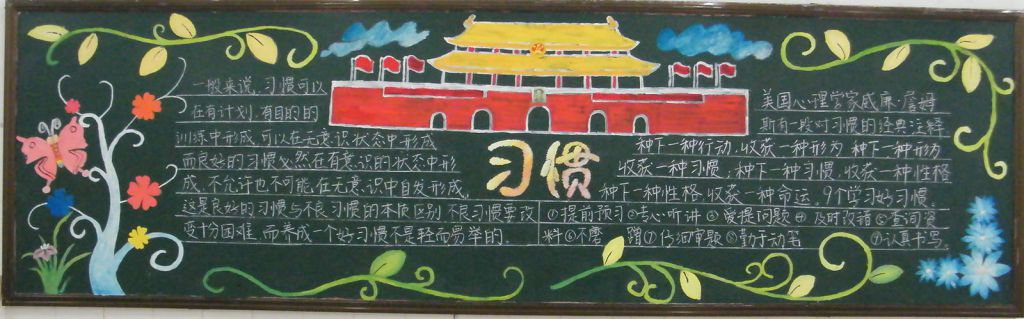 一般来说,习惯可以
在有计划,有目的的
训练中形成,可以在无意识状态中形成
而良好的习惯必然在有意识的状态中形
成,不允许也不可能,在无意识中自发形成,
这是良好的习惯与不良习惯的本质区别 不良习惯要改
变十分困难,而养成一个好习惯不是轻而易举的。
习惯
美国心理学家威廉·詹姆
斯有一段对习惯的经典注释
种下一种行动,收获一种行为,种下一种行为
收获一种习惯,种下一种习惯,收获一种性格
种下一种性格,收获一种命运。9个学习好习惯。
①提前预习②专心听讲③爱提问题④及时改错⑤查阅资
料⑥不磨蹭⑦仔细审题⑧勤于动笔 ⑨认真书写。